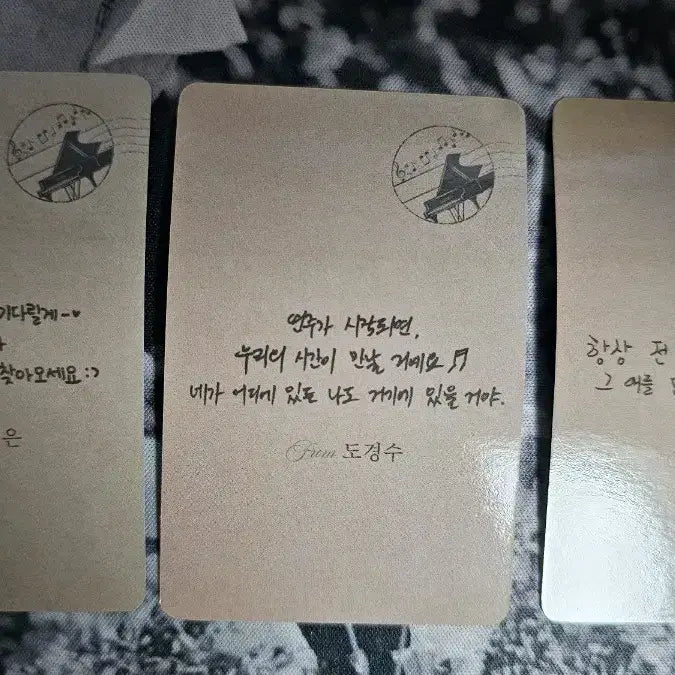 기다릴게~♥
찾아오세요:>
은
연주가 시작되면,
우리의 시간이 만날 거예요♬
네가 어디에 있든 나도 거기에 있을 거야.
From. 도경수
항상 전
그 여름